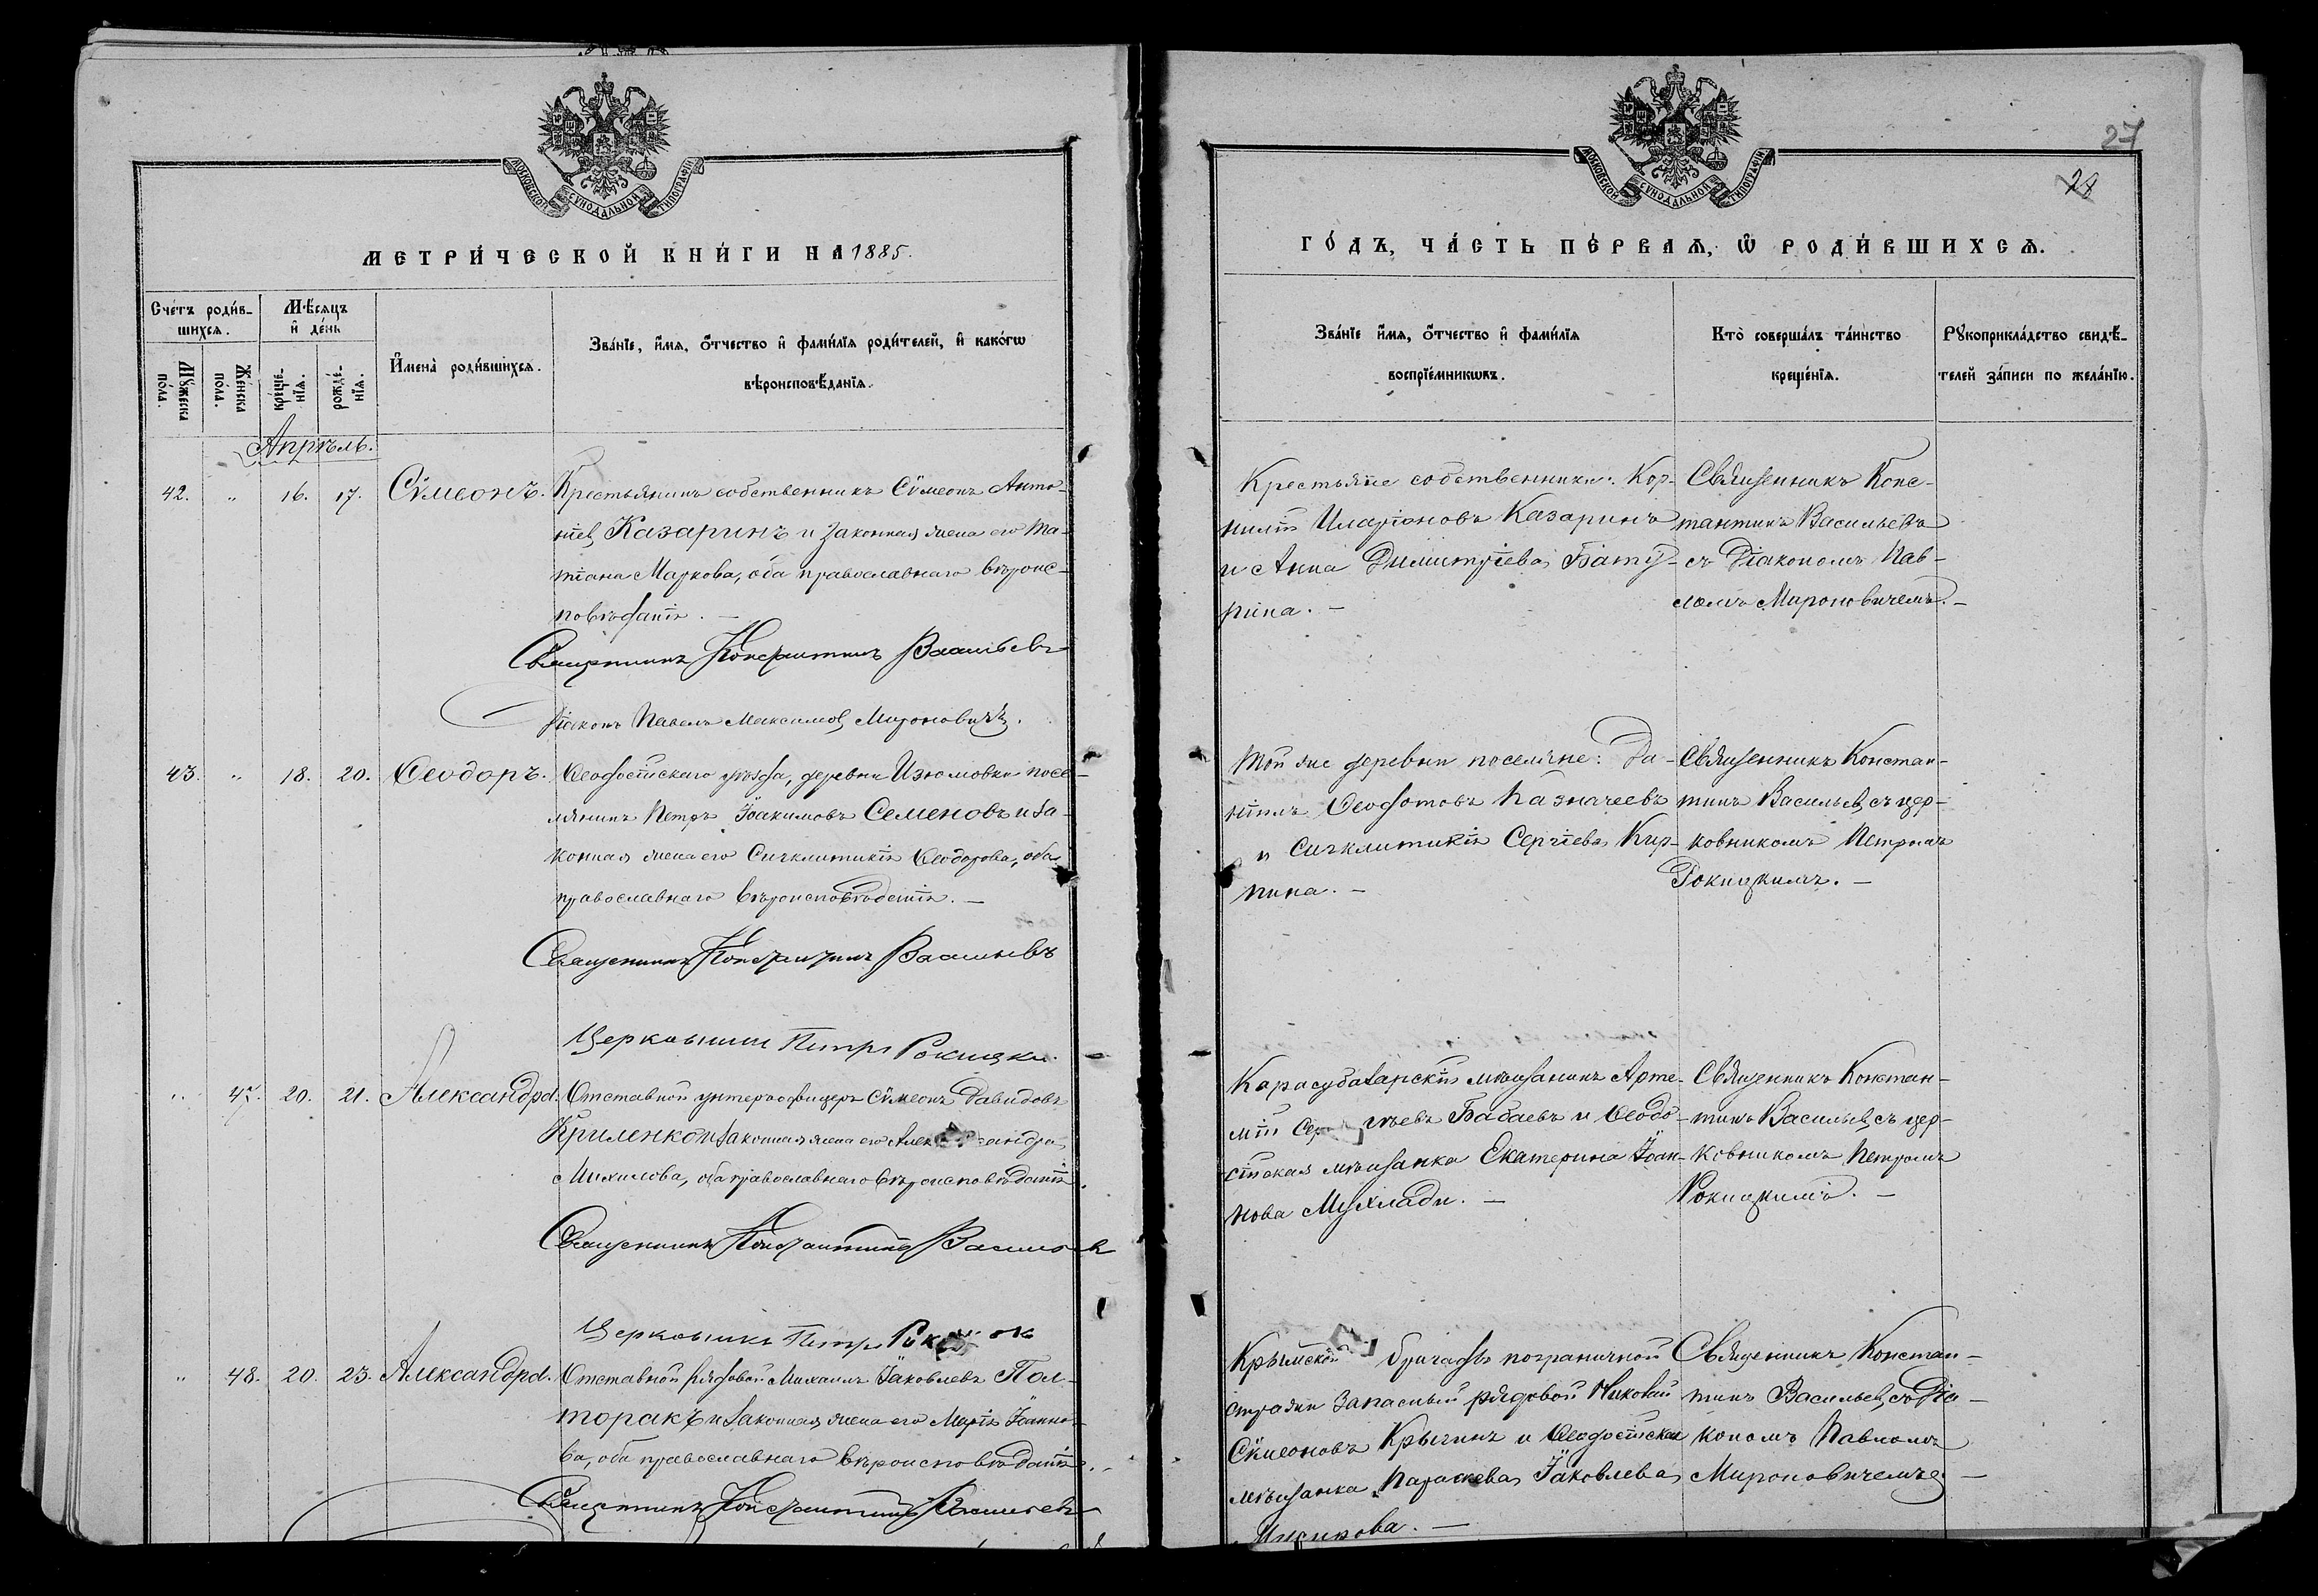 27
28
МОСКОВСКОЙ СѴНОДАЛЬНОЙ ТИПОГРАФІИ
МЕТРИ́ЧЕСКОЙ КНИ́ГИ НА 1885.
Сче́тъ роди́в-
шихсѧ.
Мѣ́сѧцъ
и҆ де́нь
Мꙋ́жеска
по́ла.
Же́нска
по́ла.
креще́-
нїѧ.
рожде́-
нїѧ.
И҆мена̀ роди́вшихсѧ.
Зва́нїе, и҆́мѧ, ѻ҆́тчество и҆ фами́лїѧ роди́телей, и҆ како́гѡ
вѣроисповѣ́данїѧ.
Апрѣль.
42. " 16. 17. Сѵмеонъ.
Крестьянинъ собственникъ Сѵмеонъ Анто-
ніев Казаринъ и законная жена его Та-
тіана Маркова, оба православнаго вѣроис-
повѣданія. —
Священникъ Константинъ Васильевъ
Діаконъ Павелъ Максимов Мироновичъ.
43. " 18. 20. Ѳеодоръ.
Ѳеодосійскаго уѣзда, деревни Изюмовки посе-
лянинъ Петръ Іоакимовъ Семеновъ и за-
конная жена его Сигклитикія Ѳеодорова, оба
православнаго вѣроисповѣданія. —
Священникъ Константинъ Васильевъ
Церковникъ Петръ Рокицки.
" 47. 20. 21. Александра.
Отставной унтеръ офицеръ Сѵмеонъ Давидовъ
Криленко и законная жена его Александра
Михаилова, оба православнаго вѣроисповѣданія.
Священникъ Константинъ Васильев
Церковникъ Петръ
" 48. 20. 23. Александра.
Отставной рядовой Михаилъ Іаковлевъ Пол-
торакъ и законная жена его Марія Іоанно-
ва, оба православнаго вѣроисповѣданія. —
Священникъ Константинъ Васильевъ
МОСКОВСКОЙ СѴНОДАЛЬНОЙ ТИПОГРАФІИ
ГО́ДЪ, ЧА́СТЬ ПЕ́РВАѦ, Ѡ҆ РОДИ́ВШИХСѦ.
Зва́нїе и҆́мѧ, ѻ҆́тчество и҆ фами́лїѧ
воспрїе́мникѡвъ.
Кто̀ соверша́лъ та́инство
креще́нїѧ.
Рꙋкоприкла́дство свидѣ́-
телей за́писи по жела́нїю.
Крестьяне собственники: Кор-
нилій Иларіоновъ Казаринъ
и Анна Димитріева Бату-
рина. —
Священникъ Конс-
тантинъ Васильевъ
съ Діакономъ Пав-
ломъ Мироновичемъ. —
Той же деревни поселяне: Да-
ніилъ Ѳеодотовъ Казначеевъ
и Сигклитикія Сергіева Кир-
пина. —
Священникъ Констан-
тинъ Васильев, съ цер-
ковникомъ Петромъ
Рокицкимъ. —
Карасубазарскій мѣщанинъ Арте-
мій Сергѣевъ Бабаевъ и Ѳеодо-
сійская мѣщанка Екатерина Іоан-
нова Мухлади. —
Священникъ Констан-
тинъ Васильев, съ цер-
ковникомъ Петромъ
Рокицкимъ. —
Крымской бригады пограничной
стражи запасный рядовой Николай
Сѵмеоновъ Крыгинъ и Ѳеодосійская
мѣщанка Параскева Іаковлева
Священникъ Констан-
тинъ Васильев, съ Діа-
кономъ Павломъ
Мироновичемъ. —